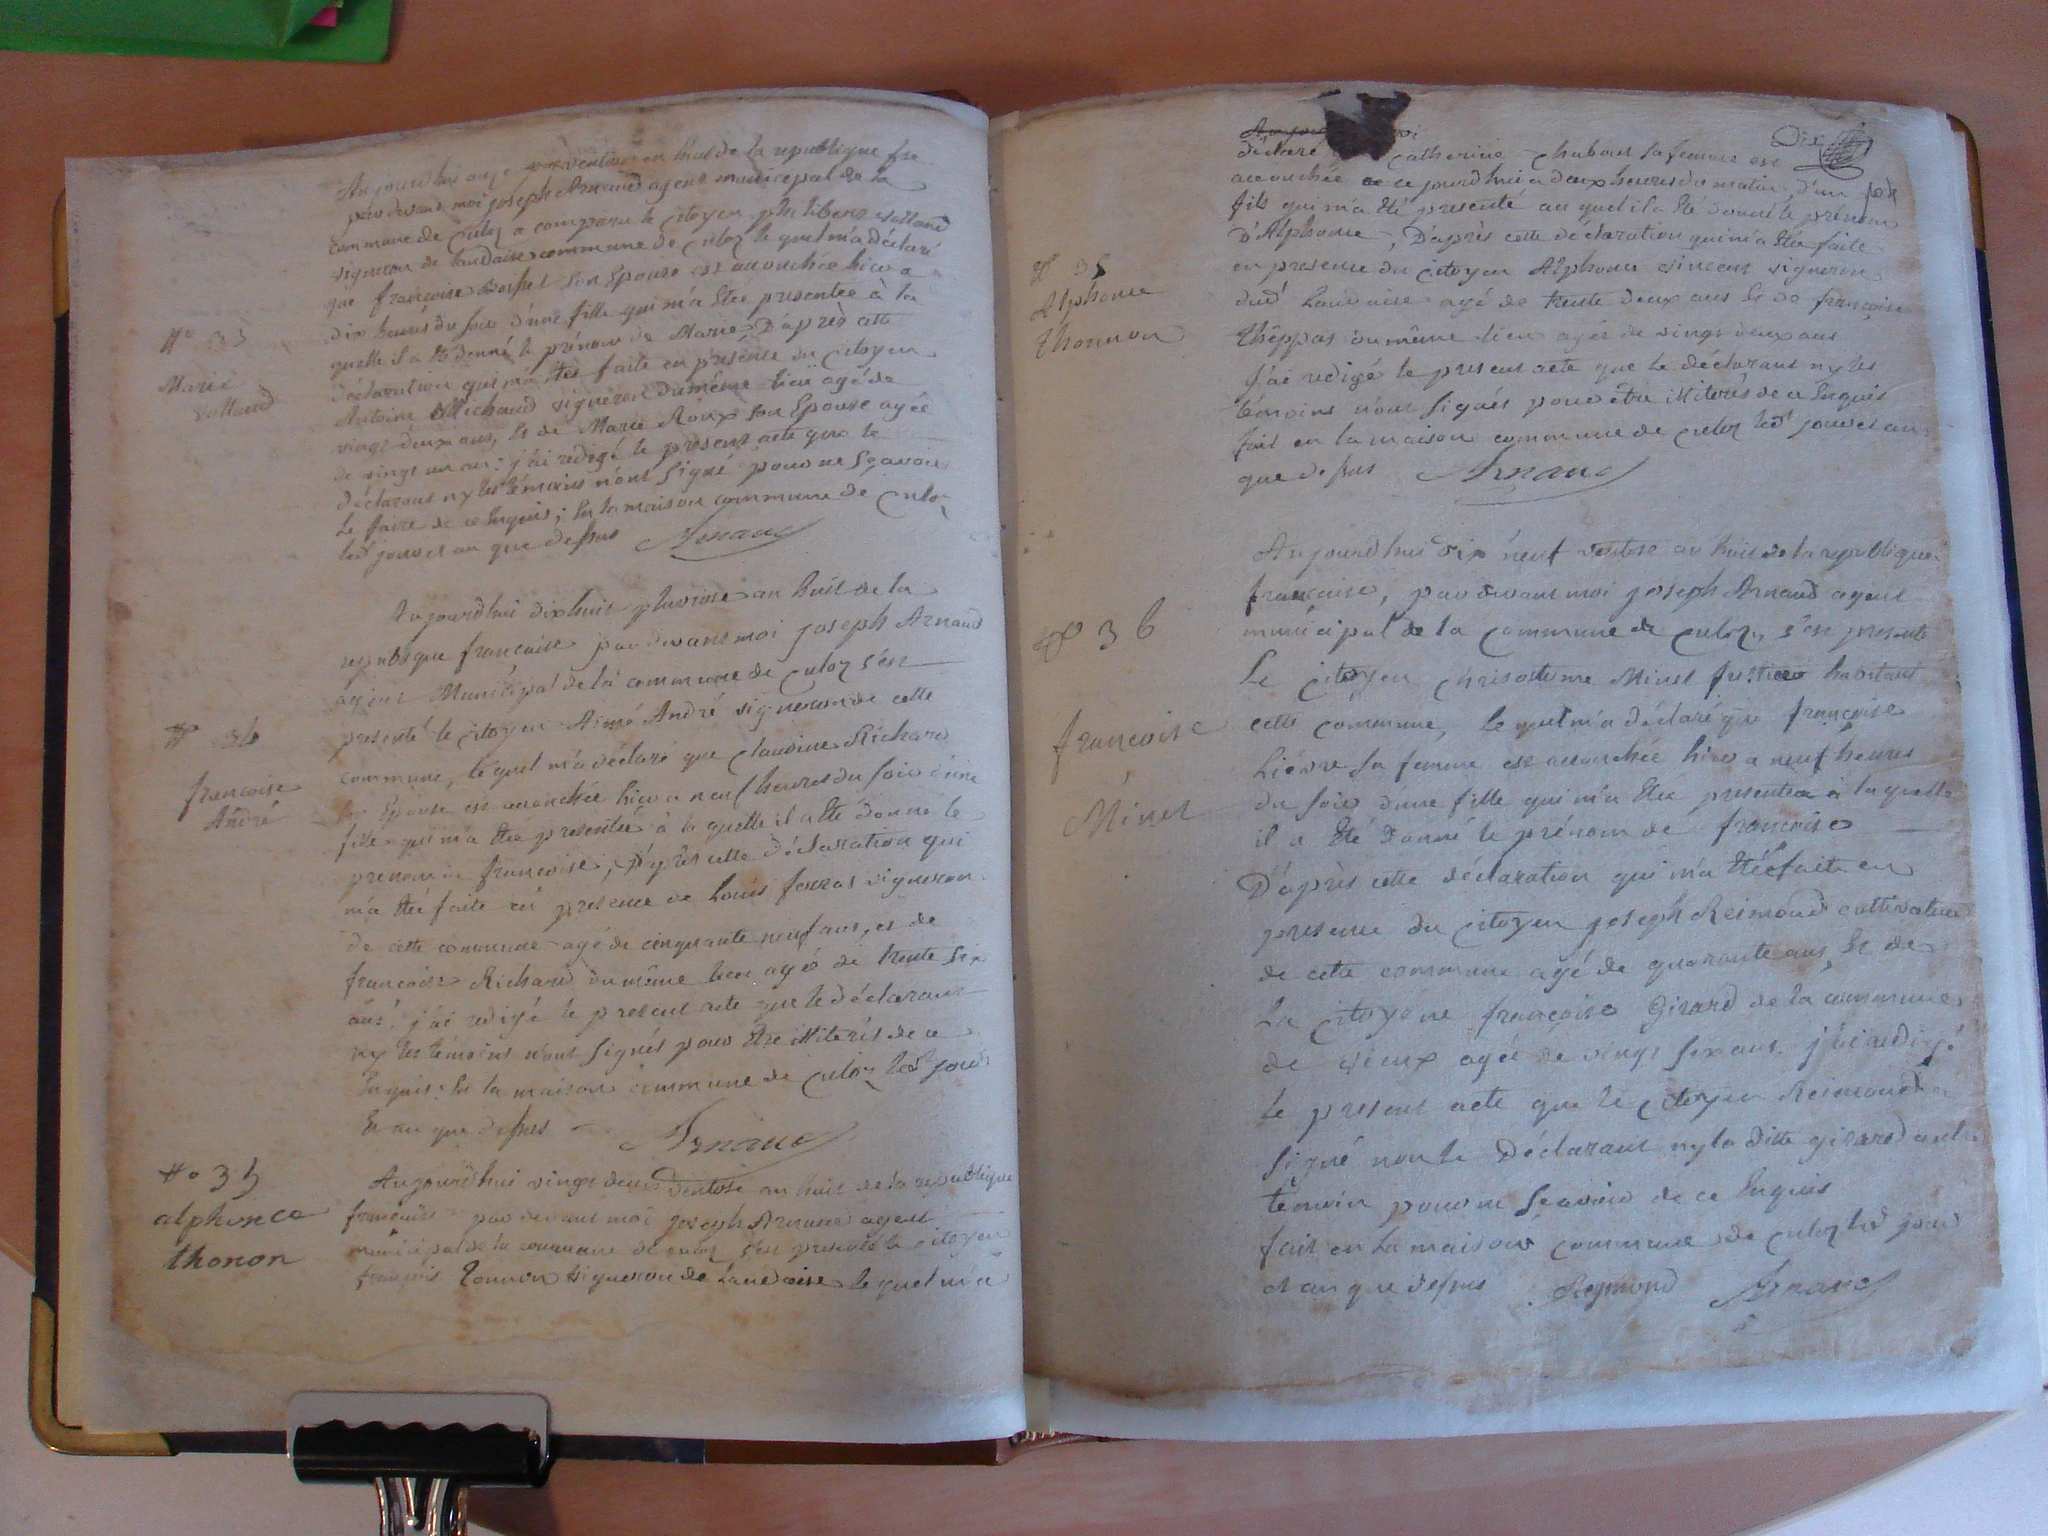 N° 33
Marie
Vulland
Aujourdhui onze ventose an huit de la republique fse
par devant moi joseph Arnaud agent municipal de la
commune de Culoz a comparu le Citoyen philibert Vulland
vigneron de landaise commune de Culoz le quel m'a déclaré
que françoise son Epouse est accouchée hier a
dix heures du soir d'une fille qui m'a étée presentée à la
quelle il a été donné le prénom de Marie, D'après cette
déclaration qui m'a étée faite en présence du Citoyen
Antoine Michaud vigneron du même lieu agé de
vingt deux ans, et de Marie Roux son Epouse agée
de vingt un ans : j'ai redigé le present acte que le
déclarant ny les témoins n'ont signé pour ne sçavoir
le faire de ce Enquis ; En la maison commune de Culoz
led jour et an que dessus Arnaud
N° 34
françoise
André
Aujourdhui dixhuit pluviose an huit de la
repubique francaise par devant moi joseph Arnaud
agent Municipal de la commune de Culoz s'est
presenté le Citoyen Aimé André vigneron de cette
commune, le quel m'a déclaré que Claudine Richard
son Epouse est accouchée hier a neuf heures du soir d'une
fille qui m'a étée presentée à la quelle il a été donné le
prenom de françoise, D'après cette déclaration qui
m'a étée faite en présence de Louis vigneron
de cette commune agé de cinquante neuf ans, et de
francoise Richard du même lieu agée de trente six
ans, j'ai redigé le present acte que le déclarant
ny les témoins n'ont signés pour être illiterés de ce
Enquis : En la maison commune de Culoz led jour
Et an que dessus Arnaud
N° 35
alphonce
thonon
Aujourd'hui vingt deux Ventose an huit de la republique
françaises par devant moi joseph Arnaud agent
municipal de la commune de culoz s'est presenté le citoyen
françois Tonnon vigneron de Landaise le quel m'a
Dix
déclaré Catherine Chabout sa femme est
accouchée ce jourd'hui a deux heures du matin, d'un
fils qui m'a été presenté au quel il a été donné le prénom
D'Alphonse, D'après cette déclaration qui m'a étée faite
en presence du Citoyen Alphonse vincent vigneron
dud Landaise agé de trente deux ans Et de françoise
théppas du même lieu agée de vingt deux ans
J'ai redigé le present acte que le déclarant ny les
témoins n'ont signés pour être illiterés de ce Enquis
fait en la maison commune de Culoz led jour et an
que dessus Arnaud
N° 35
Alphonse
thonnon
N° 36
françoise
Minet
Aujourdhui dix neuf ventose an huit de la republique
francaise, par devant moi joseph Arnaud agent
municipal de la Commune de Culoz, s'est presenté
Le Citoyen Chrisosteme Minet habitant
cette commune, le quel m'a déclaré que françoise
Liévre sa femme est accouchée hier a neuf heures
du soir d'une fille qui m'a étée presentée à laquelle
il a été donné le prénom de françoise
D'après cette déclaration qui m'a étée faite en
presence du Citoyen joseph Reimond cultivateur
de cette commune agé de quarante ans, Et de
La Citoyene françoise Girard de la commune
de vieux agée de vingt six ans. j'ai redigé
le present acte que le Citoyen Reimond a
signé non le Déclarant ny la ditte girard autre
temoin pour ne sçavoir de ce Enquis
fait en la maison commune de Culoz led jour
et an que dessus Reymond Arnaud